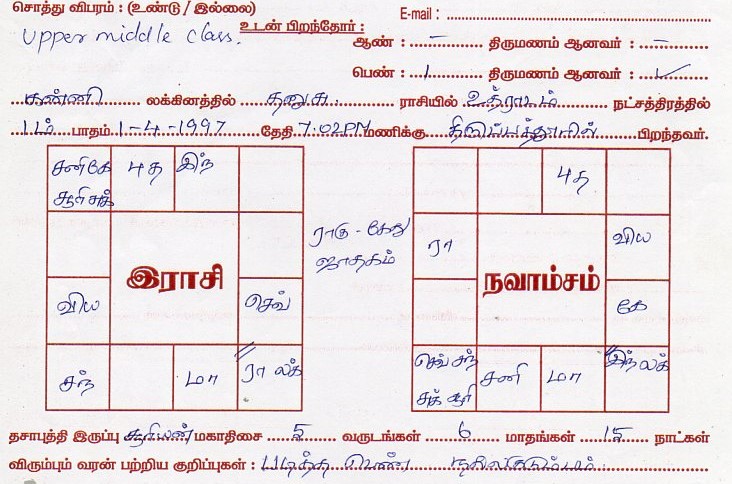 சொத்து விபரம் : (உண்டு / இல்லை)
E-mail :
Upper middle class.
உடன் பிறந்தோர் :
ஆண் : – திருமணம் ஆனவர் : –
பெண் : 1 திருமணம் ஆனவர் : ✓
கன்னி லக்கினத்தில் தனுசு ராசியில் உத்ராடம் நட்சத்திரத்தில்
1ம் பாதம் 1-4-1997 தேதி 7.02PM மணிக்கு பிறந்தவர்.
சனி கே புத இந்
சூரி சுக்
ராகு - கேது
ஜாதகம்
இராசி
விய செவ்
சந் மா ரா லக்
புத
ரா விய
நவாம்சம்
கே
செவ் சந் சனி மா இந் லக்
சுக் சூரி
தசாபுத்தி இருப்பு சூரியன் மகாதிசை 5 வருடங்கள் 6 மாதங்கள் 15 நாட்கள்
விரும்பும் வரன் பற்றிய குறிப்புகள் : படித்த பெண்